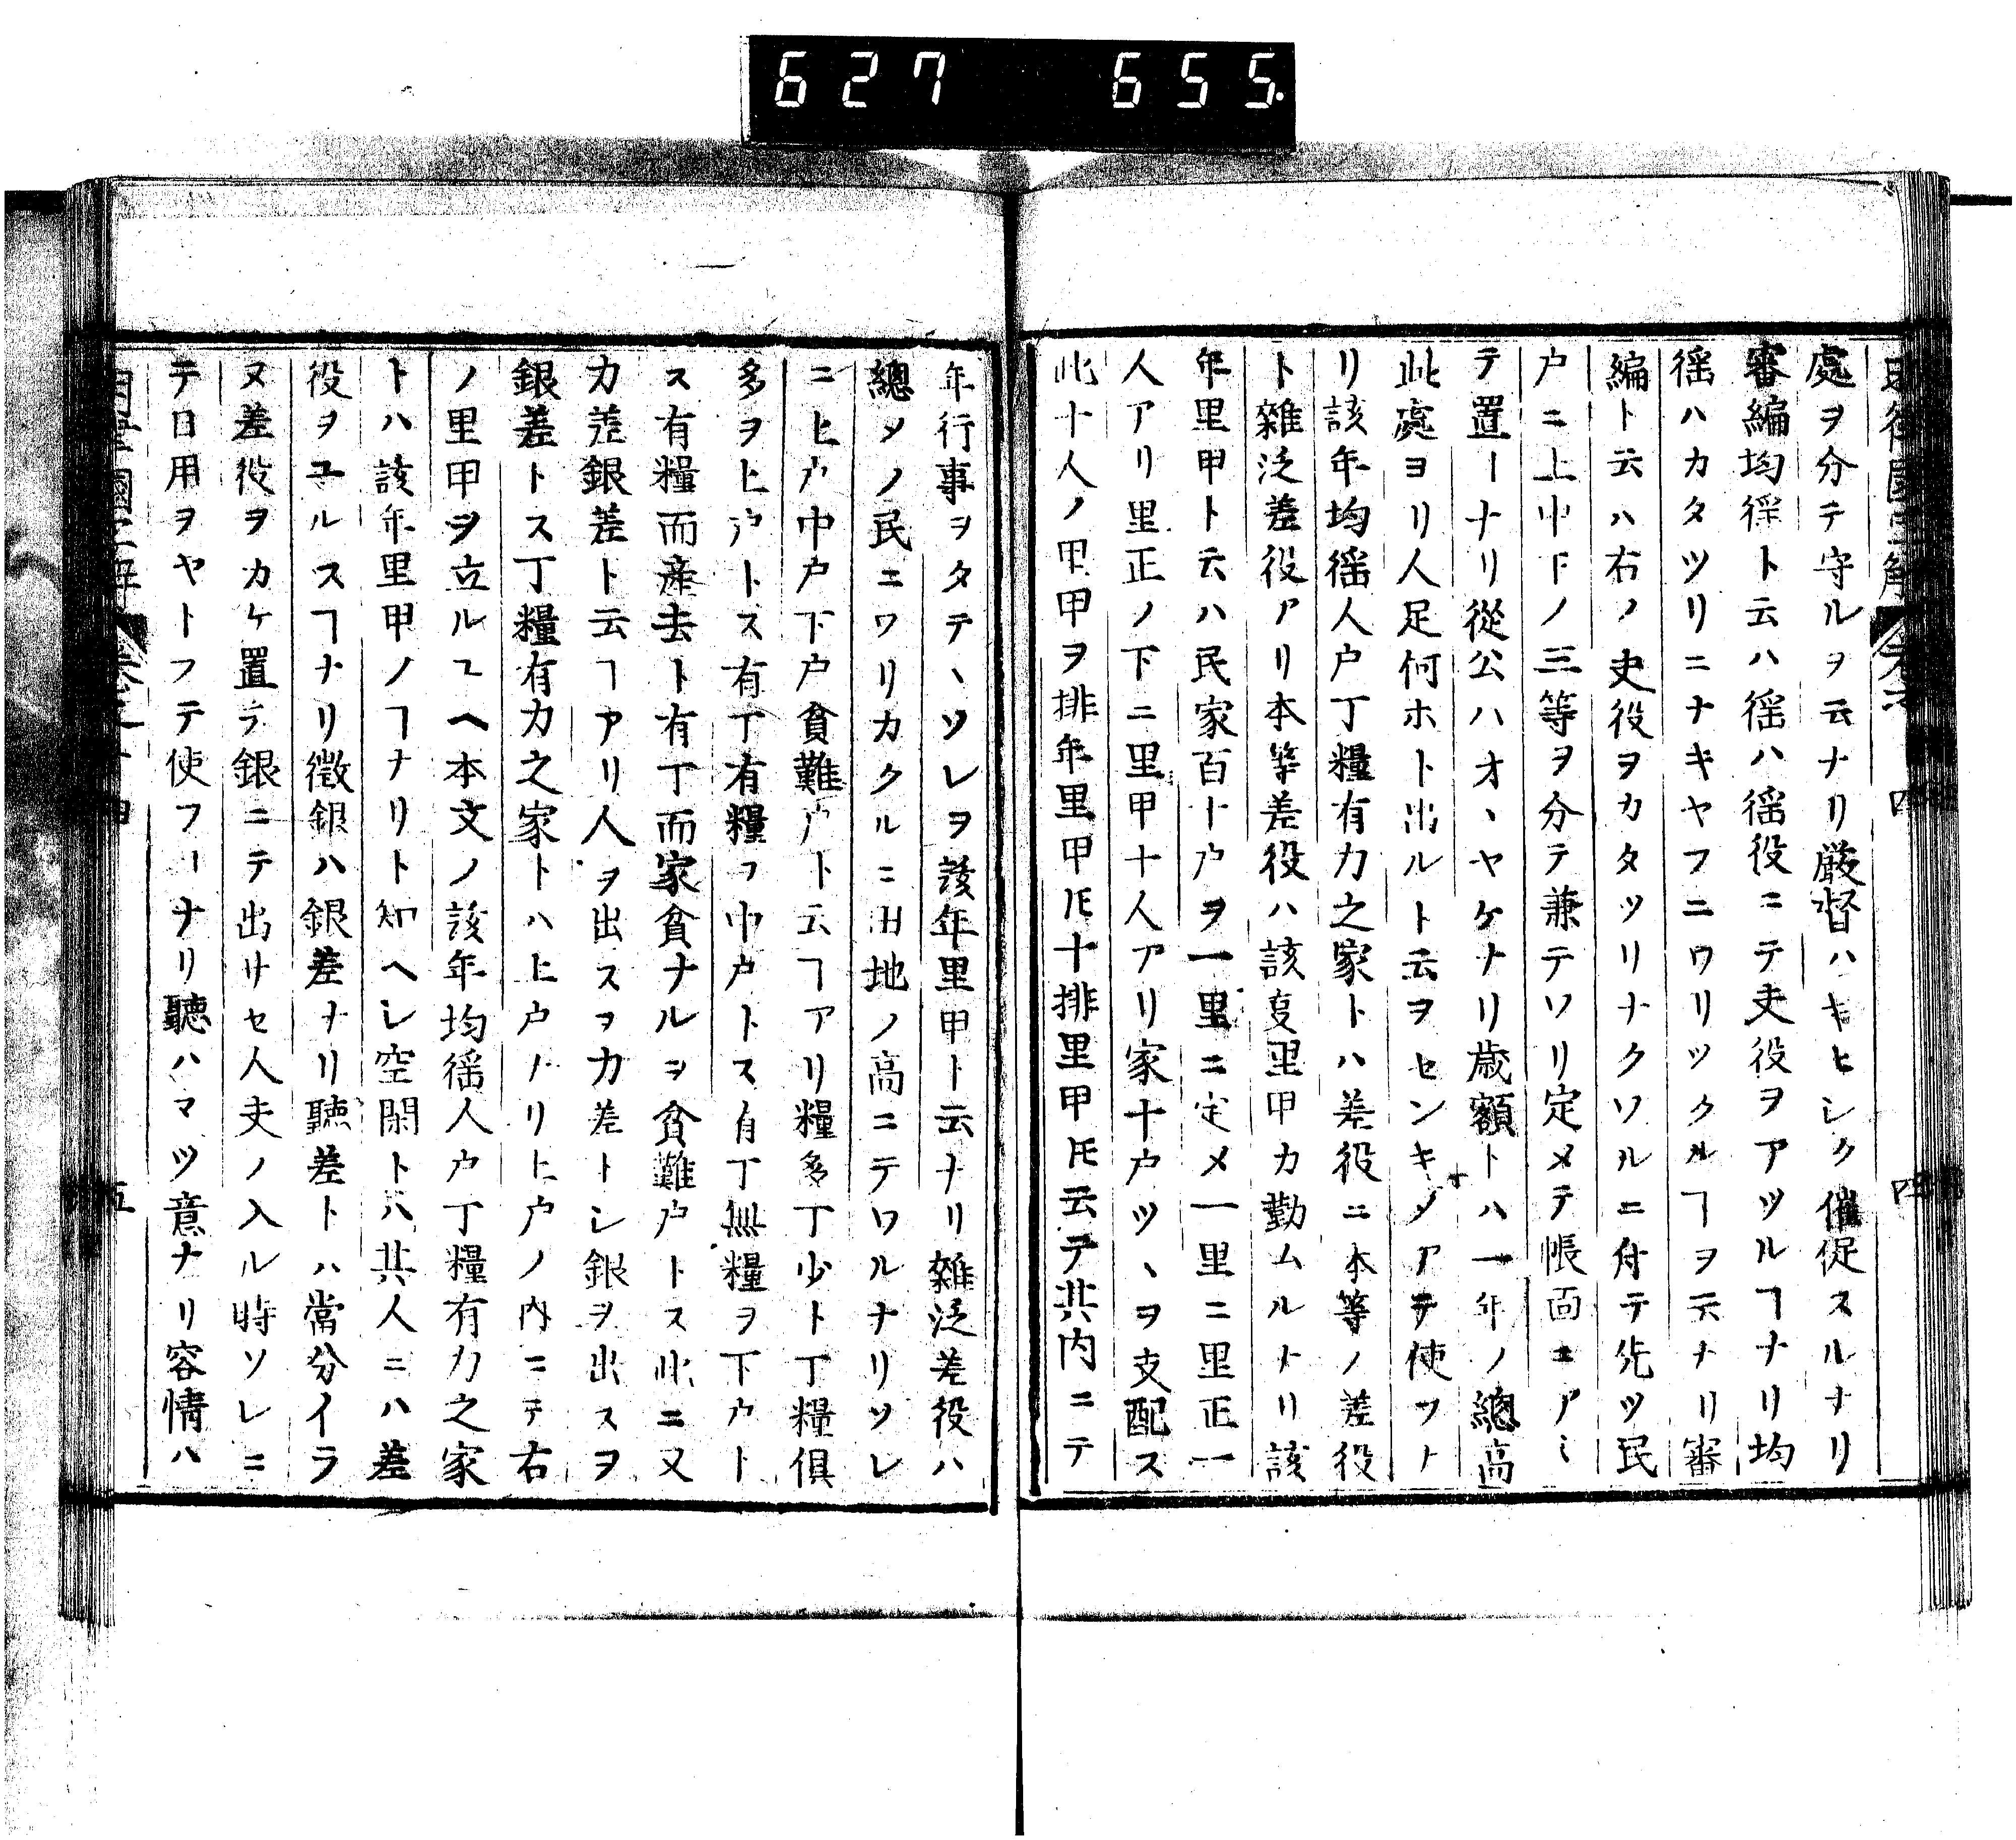 627 655.
處ヲ分テ守ルヲ云ナリ嚴督ハキヒシク催促スルナリ
審編均徭ト云ハ徭ハ徭役ニテ夫役ヲアツルヿナリ均
徭ハカタツリニナキヤフニワリツクルヿヲ云ナリ審
編ト云ハ右ノ夫役ヲカタツリナクワルニ付テ先ツ民
戸ニ上中下ノ三等ヲ分テ兼テワリ定メテ帳面ニアミ
テ置ーナリ從公ハオヽヤケナリ歳額トハ一年ノ總高
此處ヨリ人足何ホト出ルト云ヲセンキメアテ使フナ
リ該年均徭人戸丁糧有力之家トハ差役ニ本等ノ差役
ト雜泛差役アリ本等差役ハ該年里甲カ勤ムルナリ該
年里甲ト云ハ民家百十戸ヲ一里ニ定メ一里ニ里正一
人アリ里正ノ下ニ里甲十人アリ家十戸ツヽヲ支配ス
此十人ノ里甲ヲ排年里甲𪜈十排里甲𪜈云テ其内ニテ
年行事ヲタテヽソレヲ該年里甲ト云ナリ雜泛差役ハ
總メノ民ニワリカクルニ田地ノ高ニテワルナリソレ
ニ上戸中戸下戸貧難戸ト云ヿアリ糧多丁少ト丁糧俱
多ヲ上戸トス有丁有糧ヲ中戸トス有丁無糧ヲ下戸ト
ス有糧而産去ト有丁而家貧ナルヲ貧難戸トス此ニ又
力差銀差ト云ヿアリ人ヲ出スヲ力差トシ銀ヲ出スヲ
銀差トス丁糧有力之家トハ上戸ナリ上戸ノ内ニテ右
ノ里甲ヲ立ルユヘ本文ノ該年均徭人戸丁糧有力之家
トハ該年里甲ノヿナリト知ヘシ空閑ト八其人ニハ差
役ヲユルスヿナリ徵銀ハ銀差ナリ聽差トハ當分イラ
ヌ差役ヲカケ置テ銀ニテ出サセ人夫ノ入ル時ソレニ
テ日用ヲヤトフテ使フーナリ聽ハマツ意ナリ容情ハ